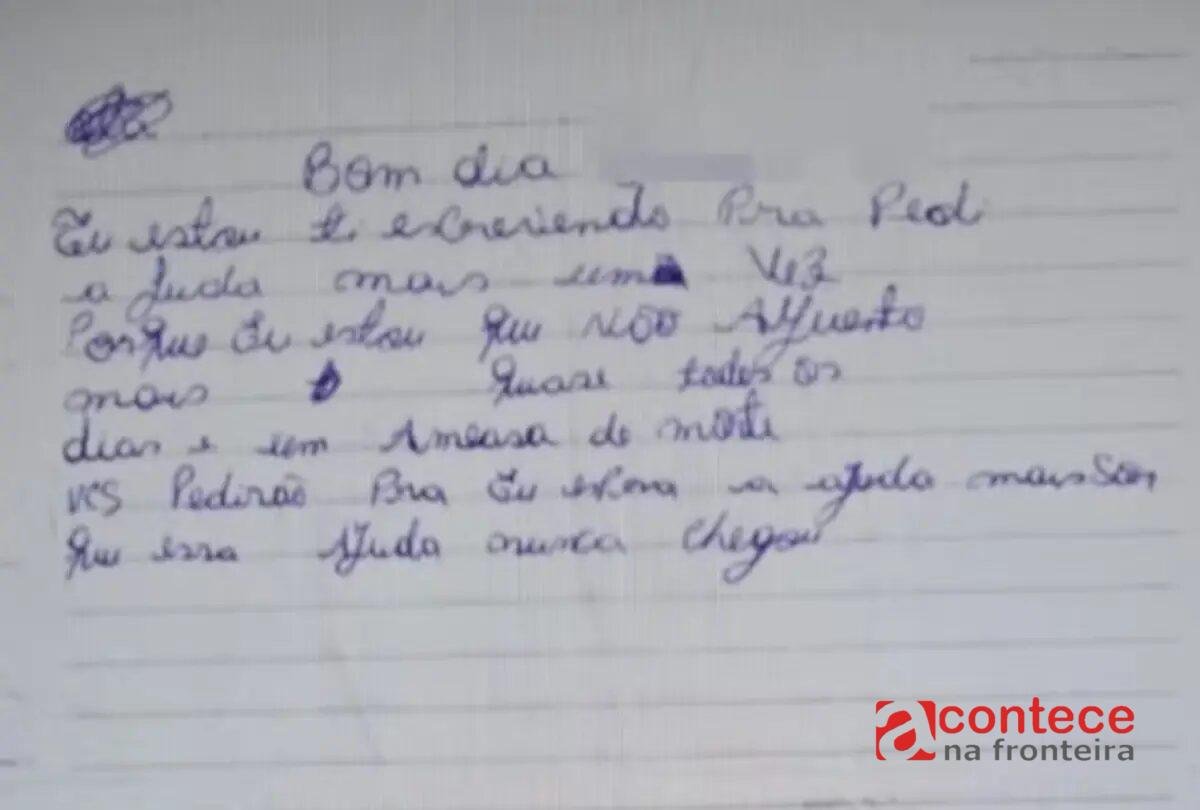 Bom dia
Eu estou ti escreviendo Pra Pedi
a Juda mais uma Vez
Porque Eu estou que NÃO Aguento
mais quase todos os
dias e um Ameasa de morte
VCS Pedirão Pra Eu a ajuda mais
que essa Ajuda nunca chegou
acontece
na fronteira